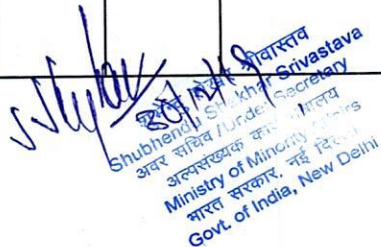 30/12/19
शुभेन्दु शेखर श्रीवास्तव
Shubhendu Shekhar Srivastava
अवर सचिव / Under Secretary
अल्पसंख्यक कार्य मंत्रालय
Ministry of Minority Affairs
भारत सरकार, नई दिल्ली
Govt. of India, New Delhi